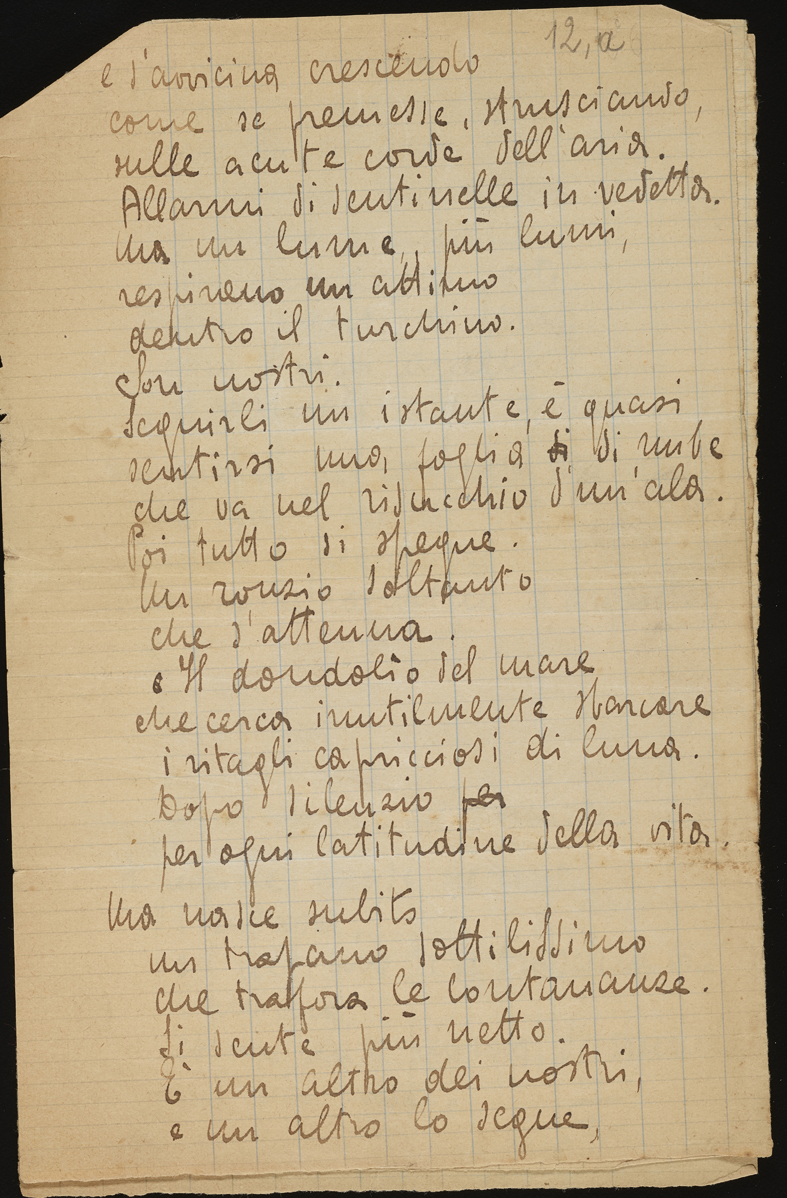 12, a
e s'avvicina crescendo
come se premesse, strusciando,
sulle acute corde dell'aria.
Allarmi di sentinelle in vedetta.
Ma un lume, più lumi,
respirano un attimo
dentro il turchino.
Son nostri.
Seguirli un istante, è quasi
sentirsi una foglia di di nube
che va nel risucchio d'un'ala.
Poi tutto si spegne.
Un ronzio soltanto
che s'attenua.
e Il dondolio del mare
che cerca inutilmente sbarcare
i ritagli capricciosi di luna.
Dopo silenzio per
per ogni latitudine della vita.
Ma nasce subito
un trapano sottilissimo
che trafora le lontananze.
Si sente più netto.
È un altro dei nostri,
e un altro lo segue,